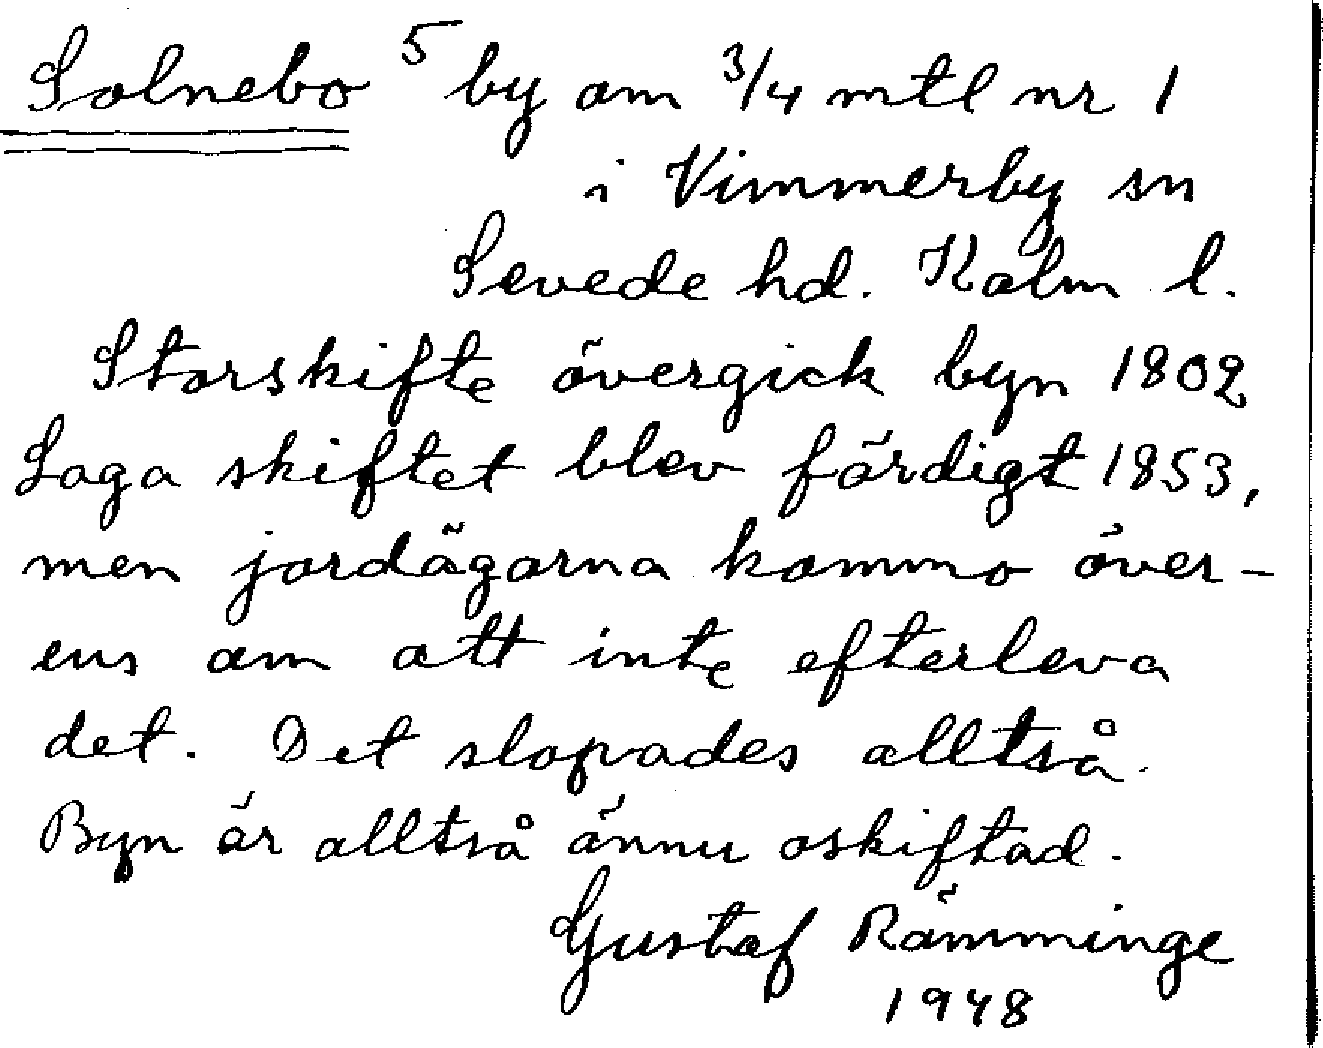 Solnebo 5 by om 3/4 mtl nr 1
i Vimmerby sn
Sevede hd. Kalm l.
Storskifte övergick byn 1802
Laga skiftet blev färdigt 1853,
men jordägarna kommo över-
ens om att inte efterleva
det. Det slopades alltså.
Byn är alltså ännu oskiftad.
Gustaf Rämminge
1948